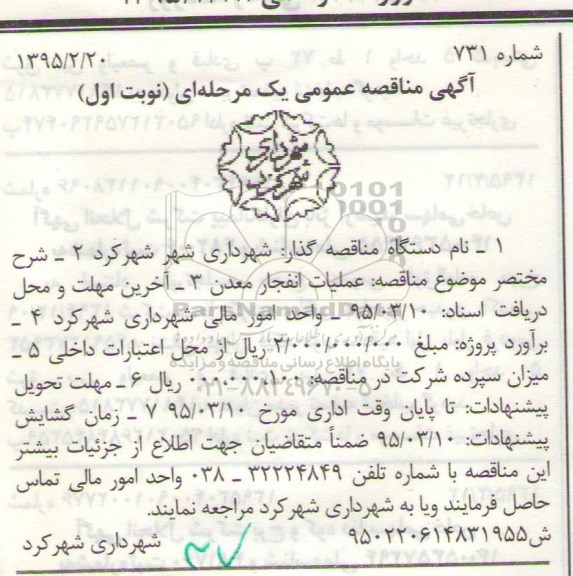 شماره ۷۳۱
۱۳۹۵/۲/۲۰
آگهی مناقصه عمومی یک مرحله‌ای (نوبت اول)
شهرداری
شهرکرد
۱ ـ نام دستگاه مناقصه گذار: شهرداری شهر شهرکرد ۲ ـ شرح
مختصر موضوع مناقصه: عملیات انفجار معدن ۳ ـ آخرین مهلت و محل
دریافت اسناد: ۹۵/۰۳/۱۰ ـ واحد امور مالی شهرداری شهرکرد ۴ ـ
برآورد پروژه: مبلغ ۲/۰۰۰/۰۰۰/۰۰۰ ریال از محل اعتبارات داخلی ۵ ـ
میزان سپرده شرکت در مناقصه: ۱۰۰/۰۰۰/۰۰۰ ریال ۶ ـ مهلت تحویل
پیشنهادات: تا پایان وقت اداری مورخ ۹۵/۰۳/۱۰ ۷ ـ زمان گشایش
پیشنهادات: ۹۵/۰۳/۱۰ ضمناً متقاضیان جهت اطلاع از جزئیات بیشتر
این مناقصه با شماره تلفن ۳۲۲۲۴۸۴۹ ـ ۰۳۸ واحد امور مالی تماس
حاصل فرمایند ویا به شهرداری شهرکرد مراجعه نمایند.
ش۹۵۰۲۲۰۶۱۴۸۳۱۹۵۵
شهرداری شهرکرد
ParsNamadData
پایگاه اطلاع رسانی مناقصه و مزایده
۰۲۱-۸۸۳۴۹۶۷۰-۵